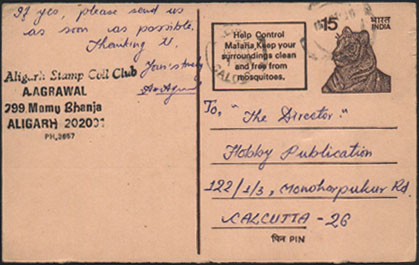 If yes, please send us
as soon as possible.
Thanking U,
Aligarh Stamp Coll Club
A.AGRAWAL
299. Mamu Bhanja
ALIGARH 202001
PH, 3657
Help Control
Malaria, Keep your
surroundings clean
and free from
mosquitoes.
15 भारत
INDIA
To, "The Director"
Hobby Publication
122/1/3, Monoharpukur Rd.
CALCUTTA - 26
पिन PIN